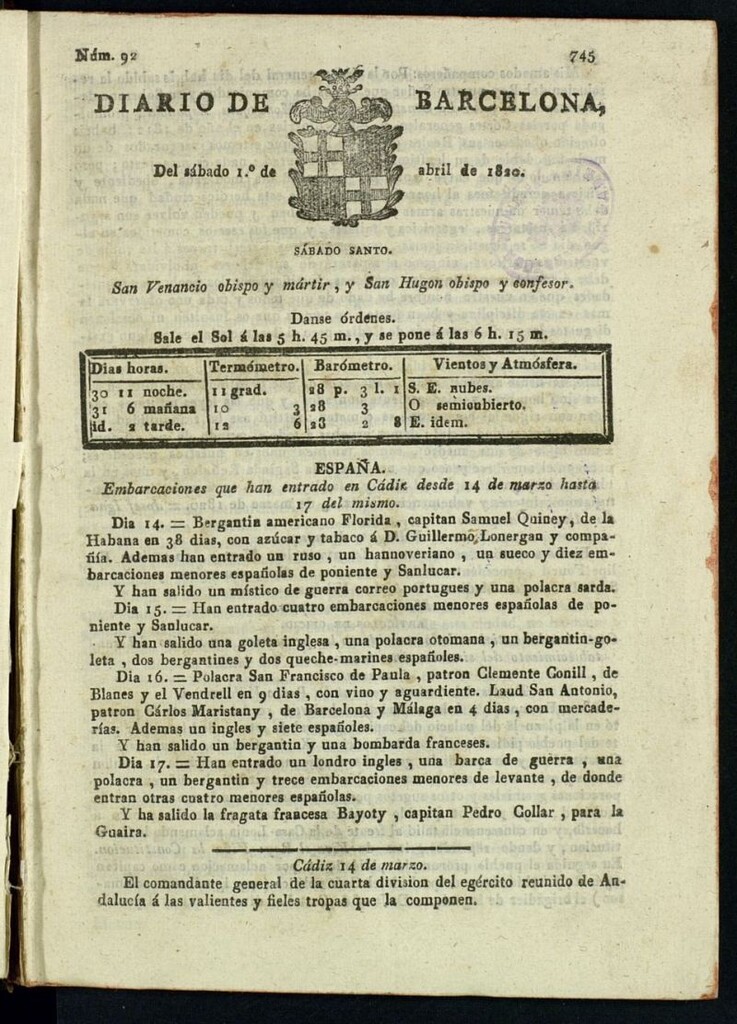 Núm. 92 745
DIARIO DE BARCELONA,
Del sábado 1.º de abril de 1820.
SÁBADO SANTO.
San Venancio obispo y mártir, y San Hugon obispo y confesor.
Danse órdenes.
Sale el Sol á las 5 h. 45 m., y se pone á las 6 h. 15 m.
Dias horas. Termómetro. Barómetro. Vientos y Atmósfera.
30 11 noche. 11 grad. 28 p. 3 l. 1 S. E. nubes.
31 6 mañana 10 3 28 3 O semicubierto.
id. 2 tarde. 12 6 28 2 8 E. idem.
ESPAÑA.
Embarcaciones que han entrado en Cádiz desde 14 de marzo hasta
17 del mismo.
Dia 14. = Bergantin americano Florida, capitan Samuel Quiney, de la
Habana en 38 dias, con azúcar y tabaco á D. Guillermo Lonergan y compa-
ñía. Ademas han entrado un ruso, un hannoveriano, un sueco y diez em-
barcaciones menores españolas de poniente y Sanlucar.
Y han salido un místico de guerra correo portugues y una polacra sarda.
Dia 15. = Han entrado cuatro embarcaciones menores españolas de po-
niente y Sanlucar.
Y han salido una goleta inglesa, una polacra otomana, un bergantin-go-
leta, dos bergantines y dos queche-marines españoles.
Dia 16. = Polacra San Francisco de Paula, patron Clemente Conill, de
Blanes y el Vendrell en 9 dias, con vino y aguardiente. Laud San Antonio,
patron Cárlos Maristany, de Barcelona y Málaga en 4 dias, con mercade-
rías. Ademas un ingles y siete españoles.
Y han salido un bergantin y una bombarda franceses.
Dia 17. = Han entrado un londro ingles, una barca de guerra, una
polacra, un bergantin y trece embarcaciones menores de levante, de donde
entran otras cuatro menores españolas.
Y ha salido la fragata francesa Bayoty, capitan Pedro Collar, para la
Guaira.
Cádiz 14 de marzo.
El comandante general de la cuarta division del egército reunido de An-
dalucía á las valientes y fieles tropas que la componen.